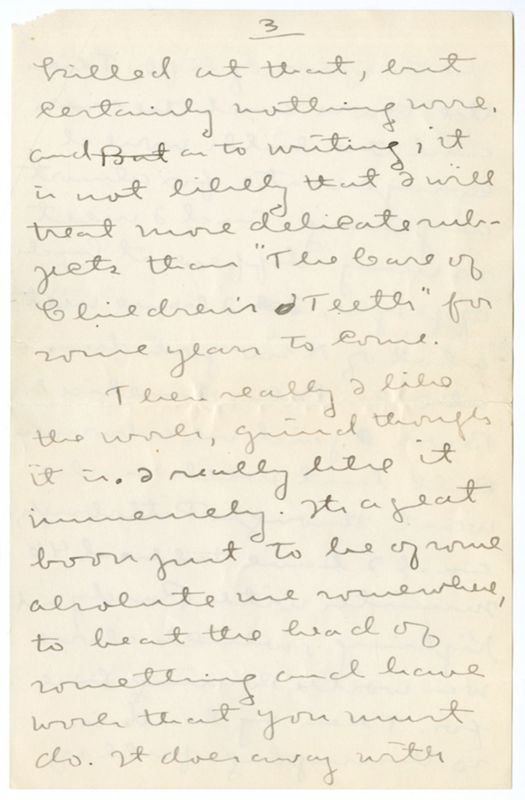 3
killed at that, but
certainly nothing more.
and But as to writing, it
is not likely that I will
treat more delicate sub-
jects than "The Care of
Children's Teeth" for
some years to come.
Then really I like
the work, grind though
it is. I really like it
immensely. Its a great
boon just to be of some
absolute use somewhere,
to be at the head of
something and have
work that you must
do. It does away with